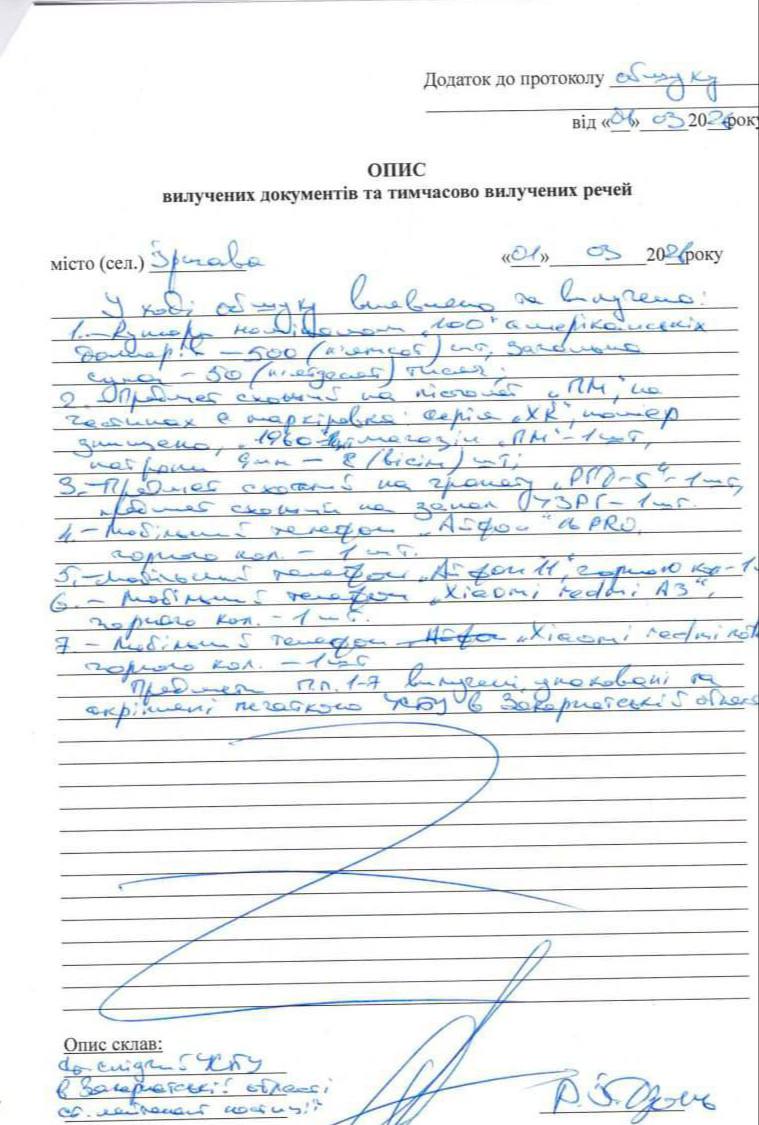 Додаток до протоколу обшуку
від «01» 03 2026 року
ОПИС
вилучених документів та тимчасово вилучених речей
місто (сел.) Іршава «01» 03 2026 року
У ході обшуку виявлено та вилучено:
1.– Купюри номіналом „100" американських
доларів – 500 (п'ятсот) шт, загальна
сума – 50 (п'ятдесят) тисяч;
2. Предмет схожий на пістолет „ПМ", на
частинах є маркіровка: серія „ХК", номер
знищено, „1960", магазин „ПМ" – 1 шт,
патрони 9мм – 8 (вісім) шт;
3.– Предмет схожий на гранату „РГД-5" – 1 шт,
предмет схожий на запал УЗРГ – 1 шт.
4.– Мобільний телефон „Айфон" 16 PRO,
чорного кол. – 1 шт.
5.– Мобільний телефон „Айфон 11", чорного кол – 1
6.– Мобільний телефон „Xiaomi redmi A3",
чорного кол. – 1 шт.
7.– Мобільний телефон „Xiaomi redmi
чорного кол. – 1 шт
Предмети п.п. 1-7 вилучені, упаковані та
скріплені печаткою УСБУ в Закарпатській
Опис склав:
слідчий УСБУ
в Закарпатській області
ст. лейтенант юстиції